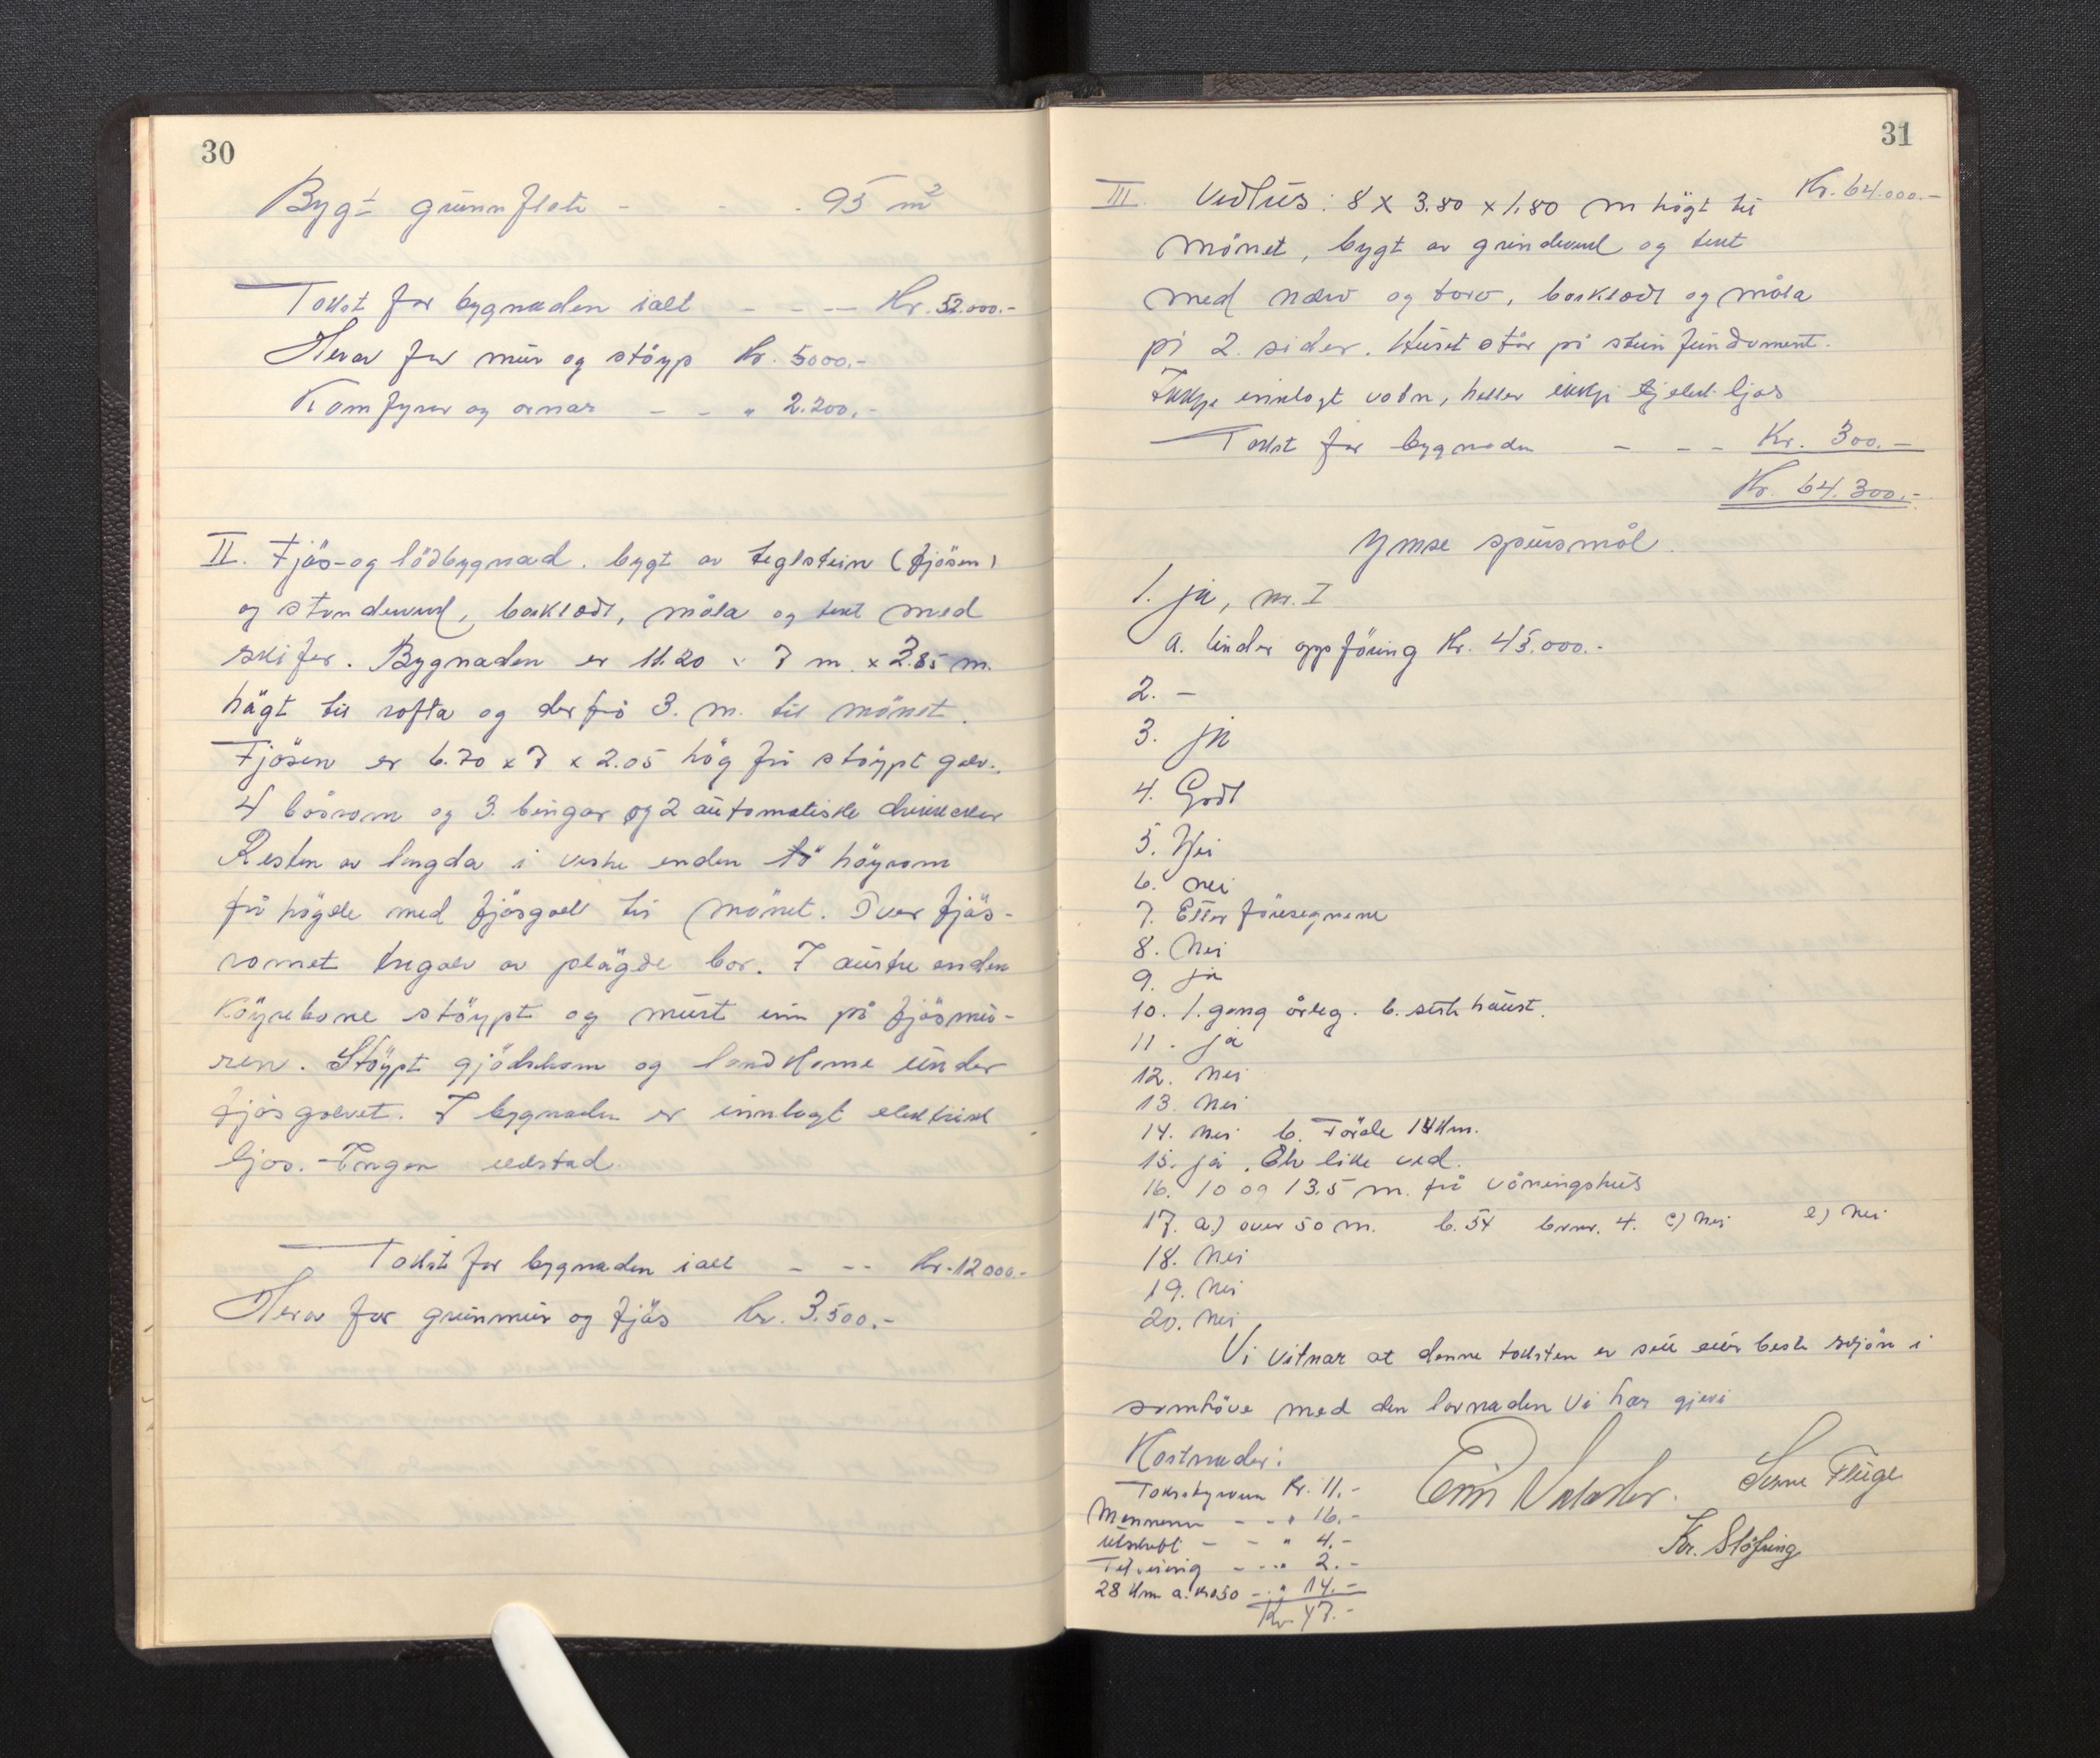 30
Bygt grunnflate - - - 95 m²
Takst for bygnaden ialt - - - Kr. 52.000.-
Herav for mur og støyp Kr. 5000.-
Komfyrar og omnar - - " 2.200.-
II. Fjøs- og lödbygnad. bygt av teglstein (fjösen)
og stenderverk, bordklædt, måla og tekt med
skifer. Bygnaden er 11.20 x 7 m. x 2.85 m.
högt til rofta og derfrå 3. m. til mönet.
Fjösen er 6.70 x 7 x 2.05 hög frå stöypt golv.
4 båsrom og 3. bingar og 2 automatiske drikkekar
Resten av lengda i vestre enden höyrom
frå högde med fjösgolv til mönet. Over fjös-
romet tregolv av plögde bor. I austre enden
köyrebane stöypt og murt inn på fjösmu-
ren. Stöypt gjödselrom og landkome under
fjösgolvet. I bygnaden er innlagt elektrisk
ljos. - Ingen eldstad.
Takst for bygnaden ialt - - - Kr. 12000.-
Herav for grunmur og fjös kr. 3.500.-
31
Kr. 64.000.-
III. Vedhus: 8 x 3.80 x 1.80 m högt til
mönet, bygt av grindverk og tekt
med næver og torv, bordklædt og måla
på 2. sider. Huset står på stein fundament.
Ikkje innlagt vatn, heller ikkje elekt. ljos
Takst for bygnaden - - - Kr. 300.-
Kr. 64.300.-
Ymse spursmål.
1. ja, nr. I
a. Under oppföring Kr. 45.000.-
2. -
3. ja
4. Godt
5. Nei
6. nei
7. Etter föresegnene
8. Nei
9. ja
10. 1. gang årleg. b. siste haust.
11. ja
12. Nei
13. Nei
14. Nei b. Förde 14 km.
15. ja. Elv like ved.
16. 10 og 13.5 m. frå våningshus
17. a.) over 50 m. b. 54 br.nr. 4. c) Nei e) Nei
18. Nei
19. Nei
20. Nei
Vi vitnar at denne taksten er sett etter beste skjön i
samhöve med den lovnaden vi har gjevi
Kostnader:
Takstyraren Kr. 11.-
Mennene - - " 16.-
Utskrift - - " 4.-
Tilvising - - " 2.-
28 km a. kr. 0.50 - " 14.-
Kr. 47.-
Sverre Fluge
Kr. Støfring